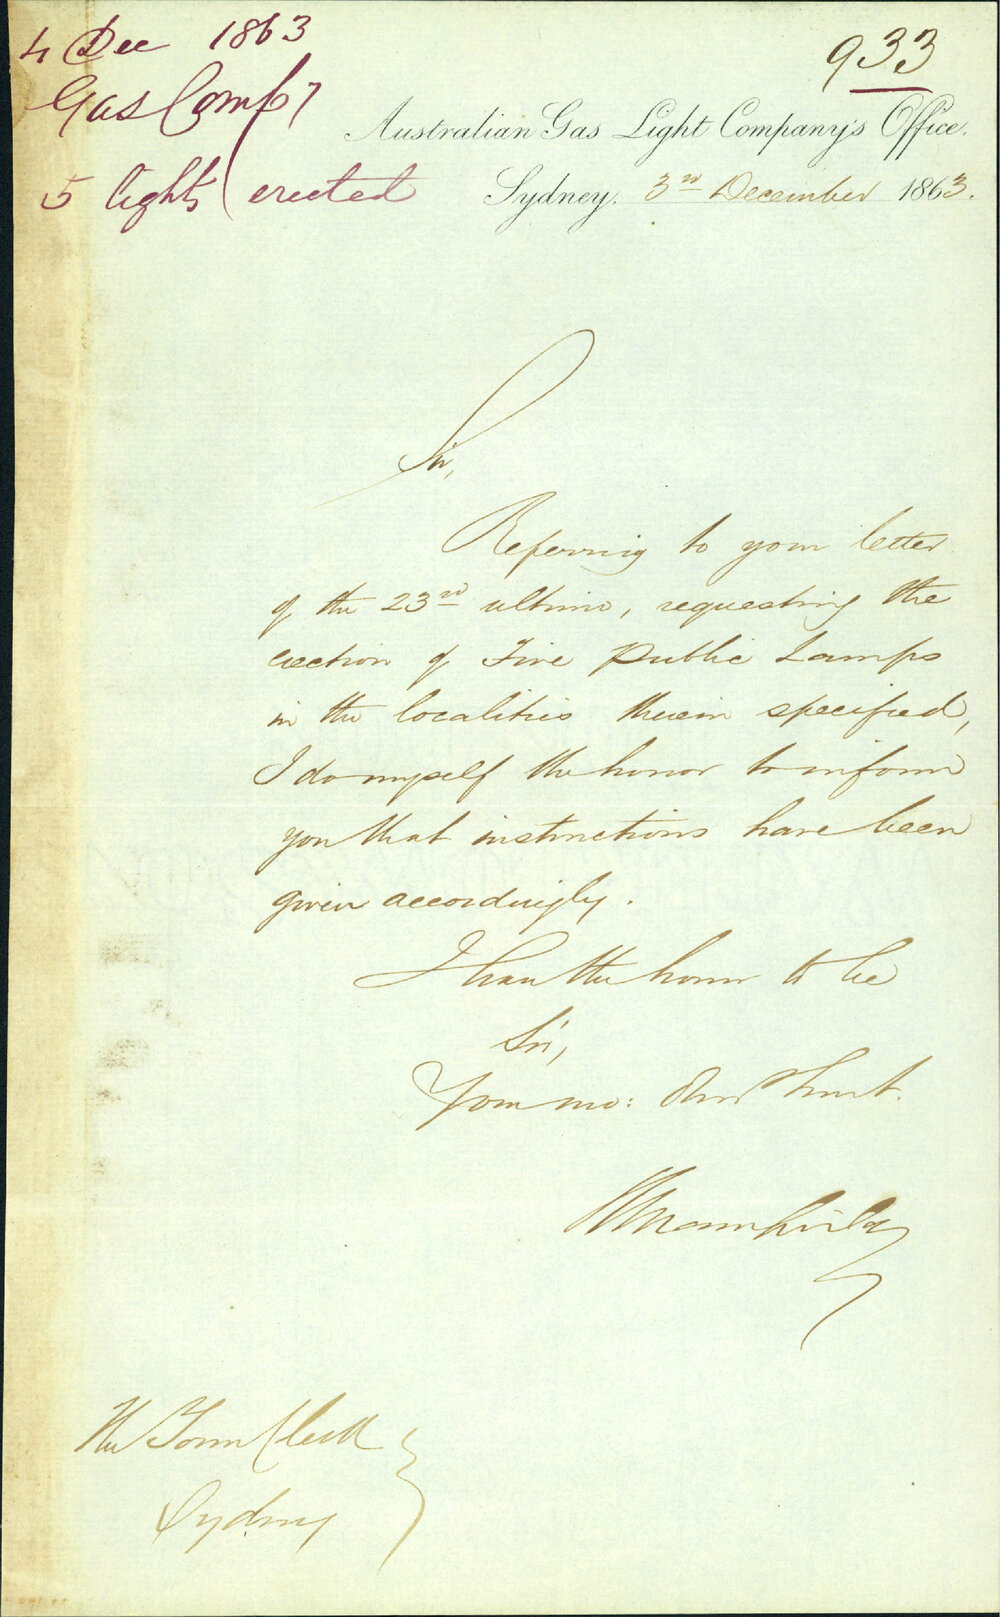 4 Dec 1863
Gas Compy
5 lights erected
933
Australian Gas Light Company's Office.
Sydney. 3rd December 1863.
Sir,
Referring to your letter
of the 23rd ultimo, requesting the
erection of Five Public Lamps
in the localities therein specified,
I do myself the honor to inform
you that instructions have been
given accordingly.
I have the honor to be
Sir,
Your mo: Obed Servt.
The Town Clerk
Sydney